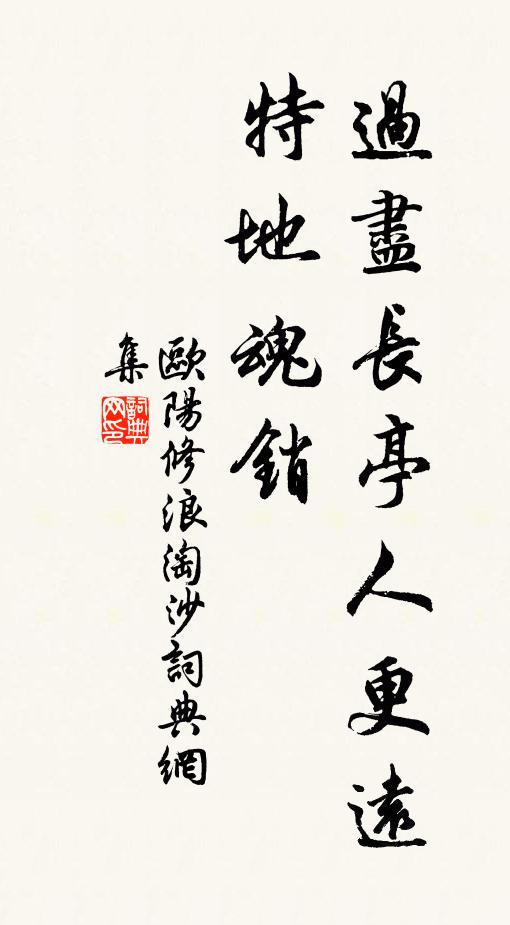 過盡長亭人更遠
特地魂銷
歐陽修浪淘沙詞典網
集
詞典
网印